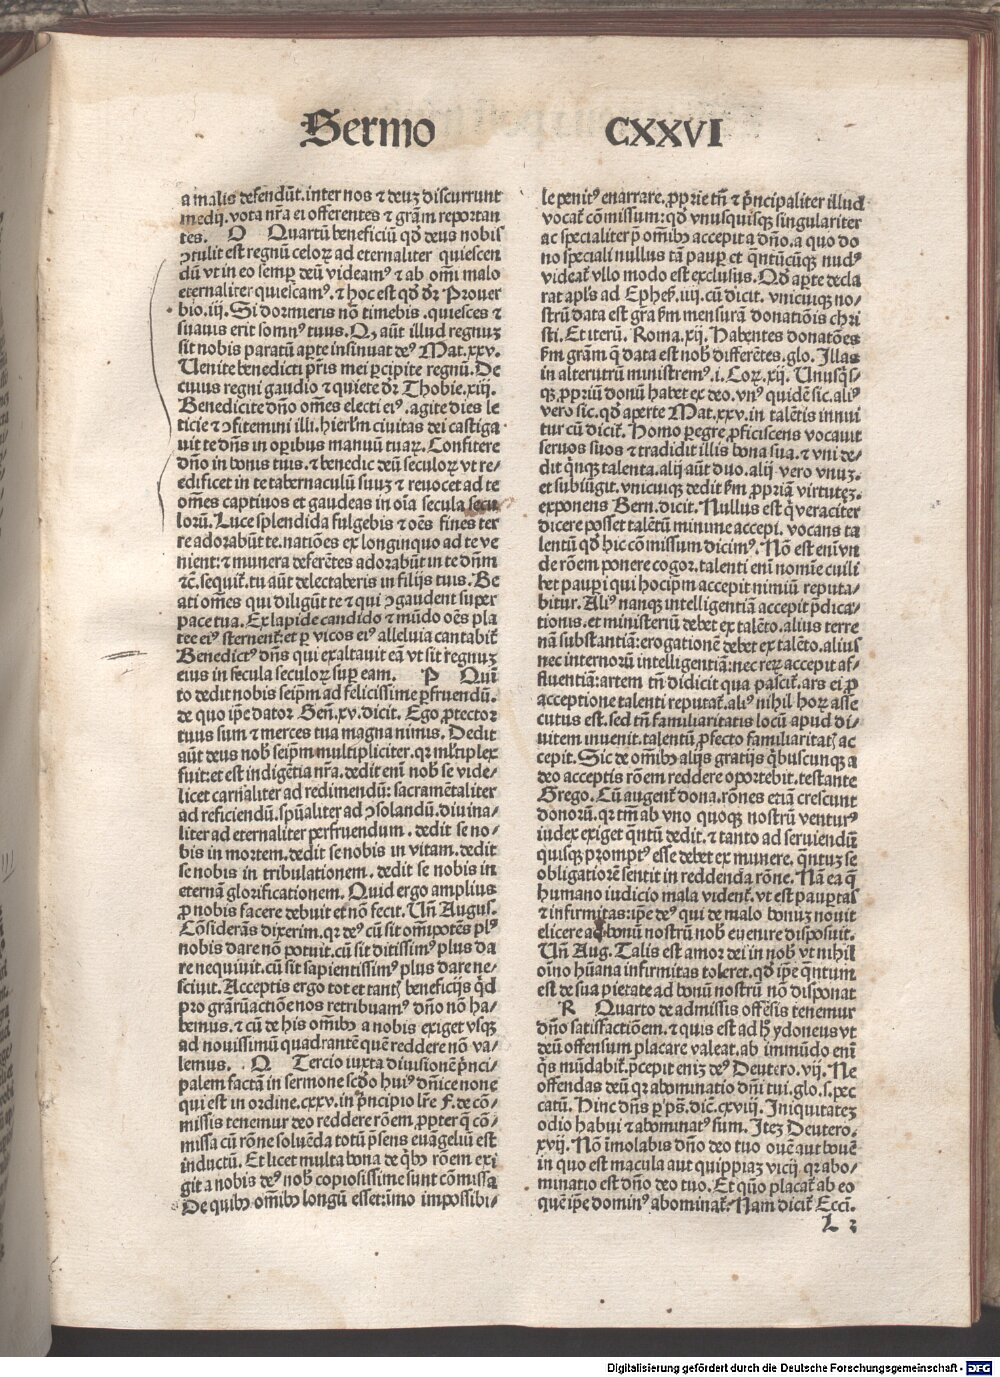 Sermo CXXVI
a malis defendūt. inter nos ⁊ deuꝫ discurrunt
medij. vota nr̄a ei offerentes ⁊ grā̄m reportan
tes. O Quartū beneficiū qd̄ deus nobis
ꝯtulit est regnū celoꝝ ad eternaliter quiescen
dū vt in eo semꝑ deū videamꝰ ⁊ ab om̄i malo
eternaliter quiescamꝰ. ⁊ hoc est qd̄ dr̄ Prouer
bio. iij. Si dormieris nō timebis. quiesces ⁊
suauis erit somnꝰ tuus. Qꝫ aūt illud regnuꝫ
sit nobis paratū aꝑte insinuat deꝰ Mat. xxv.
Uenite benedicti pr̄is mei ꝑcipite regnū. De
cuius regni gaudio ⁊ quiete dr̄ Thobie. xiij.
Benedicite dn̄o om̄es electi eiꝰ. agite dies le
ticie ⁊ ꝯfitemini illi. hierl̄m ciuitas dei castiga
uit te dn̄s in oꝑibus manuū tuaꝝ. Confitere
dn̄o in bonis tuis. ⁊ benedic deū seculoꝝ vt re⸗
edificet in te tabernaculū suuꝫ ⁊ reuocet ad te
om̄es captiuos et gaudeas in oīa secula secu
lorū. Luce splendida fulgebis ⁊ oēs fines ter
re adorabūt te. natiōes ex longinquo ad te ve
nient: ⁊ munera deferētes adorabūt in te dn̄m
⁊c̄. sequit̄. tu aūt delectaberis in filijs tuis. Be
ati om̄es qui diligūt te ⁊ qui ꝯgaudent super
pace tua. Ex lapide candido ⁊ mūdo oēs pla
tee eiꝰ sternent̄. et ꝑ vicos eiꝰ alleluia cantabit̄
Benedictꝰ dn̄s qui exaltauit eā vt sit regnuꝫ
eius in secula seculoꝝ suꝑ eam. P Quī
to dedit nobis seip̄m ad felicissime ꝑfruendū.
de quo ip̄e dator Gen̄. xv. dicit. Ego ꝓtector
tuus sum ⁊ merces tua magna nimis. Dedit
aūt deus nob̄ seip̄m multipliciter. qr ml̄tiplex
fuit: et est indigētia nr̄a. dedit eni nob̄ se vide⸗
licet carnaliter ad redimendū: sacramētaliter
ad reficiendū. spūaliter ad ꝯsolandū. diuina⸗
liter ad eternaliter perfruendum. dedit se no⸗
bis in mortem. dedit se nobis in vitam. dedit
se nobis in tribulationem. dedit se nobis in
eternā glorificationem. Quid ergo amplius
ꝓ nobis facere debuit et nō fecit. Un̄ Augus.
Cōsiderās dixerim. qr deꝰ cū sit om̄ipotēs plꝰ
nobis dare nō potuit. cū sit ditissimꝰ plus da
re nequiuit. cū sit sapientissimꝰ plus dare ne⸗
sciuit. Acceptis ergo tot et tantꝭ beneficijs qd̄
pro grāꝝactione nos retribuamꝰ dn̄o nō ha⸗
bemus. ⁊ cū de his om̄ibꝫ a nobis exiget vsqꝫ
ad nouissimū quadrantē quē reddere nō va⸗
lemus. Q Tercio iuxta diuisionē pͥnci⸗
palem factā in sermone scd̄o huiꝰ dn̄ice none
qui est in ordine. cxxv. in pͥncipio lr̄e F. de cō⸗
missis tenemur deo reddere rōem. ꝓpter qͥ cō⸗
missa cū rōne soluēda totū p̄sens euāgeliū est
inductū. Et licet multa bona de qͥbꝫ rōem exi
git a nobis deꝰ nob̄ copiosissime sunt cōmissa
De quibꝫ om̄ibꝫ longū esset: imo impossibi⸗
le penitꝰ enarrare. ꝓprie tn̄ ⁊ pͥncipaliter illud
vocat̄ cōmissum: qd̄ vnusquisqꝫ singulariter
ac specialiter p̄ om̄ibꝫ accepit a dn̄o. a quo do
no speciali nullus tā pauꝑ et qn̄tūcūqꝫ nudꝰ
videat̄ vllo modo est exclusus. Qd̄ aꝑte decla
rat apl̄s ad Ephes̄. iiij. cū dicit. vnicuiqꝫ no⸗
strū data est gr̄a ẜm mensurā donatiōis chri
sti. Et iterū. Roma. xij. Habentes donatōes
ẜm grā̄m q̄ data est nob̄ differētes. glo. Illas
in alterutrū ministremꝰ. i. Coꝝ. xij. Unusqͥs⸗
qꝫ ꝓpriū donū habet ex deo. vnꝰ quidē sic. aliꝰ
vero sic. qd̄ aperte Mat. xxv. in talētis innui
tur cū dicit̄. Homo ꝑegre ꝓficiscens vocauit
seruos suos ⁊ tradidit illis bona sua. ⁊ vni de⸗
dit qͥnqꝫ talenta. alij aūt duo. alij vero vnuꝫ.
et subiūgit. vnicuiqꝫ dedit ẜm ꝓpriā virtuteꝫ.
exponens Bern. dicit. Nullus est qͥ veraciter
dicere posset talētū minime accepi. vocans ta
lentū qd̄ hic cōmissum dicimꝰ. Nō est enī vn
de rōem ponere cogor. talenti enī nomīe cuili
bet pauꝑi qui hocip̄m accepit nimiū reputa⸗
bitur. Aliꝰ nanqꝫ intelligentiā accepit p̄dica⸗
tionis. et ministeriū debet ex talēto. alius terre
nā substantiā: erogationē debet ex talēto. alius
nec internorū intelligentiā: nec reꝝ accepit af⸗
fluentiā: artem tn̄ didicit qua pascit̄. ars ei ꝓ
acceptione talenti reputat̄. aliꝰ nihil hoꝝ asse
cutus est. sed tn̄ familiaritatis locū apud di⸗
uitem inuenit. talentū ꝓfecto familiaritatꝭ ac
cepit. Sic de om̄ibꝫ alijs gratijs qͥbuscunqꝫ a
deo acceptis rōem reddere oportebit. testante
Grego. Cū augent̄ dona. rōnes etiā crescunt
donorū. qr tm̄ ab vno quoqꝫ nostrū venturꝰ
iudex exiget qn̄tū dedit. ⁊ tanto ad seruiendū
quisqꝫ promptꝰ esse debet ex munere. qn̄tuꝫ se
obligatiorē sentit in reddenda rōne. Nā ea q̄
humano iudicio mala vident̄. vt est pauꝑtas
⁊ infirmitas: ip̄e deꝰ qui de malo bonuꝫ nouit
elicere ad bonū nostrū nob̄ euenire disposuit.
Un̄ Aug. Talis est amor dei in nob̄ vt nihil
oīno hūana infirmitas toleret. qd̄ ip̄e qn̄tum
est de sua pietate ad bonū nostrū nō disponat
R Quarto de admissis offēsis tenemur
dn̄o satisfactiōem. ⁊ quis est ad hͦ ydoneus vt
deū offensum placare valeat. ab immūdo enī
qͥs mūdabit̄. p̄cepit enīꝫ deꝰ Deutero. vij. Ne
offendas deū qr abominatio dn̄i tui. glo. s. pec
catū. Hinc dn̄s ꝑ p̄s. dic̄. cxviij. Iniquitateꝫ
odio habui ⁊ abominatꝰ sum. Iteꝫ Deutero.
xvij. Nō īmolabis dn̄o deo tuo ouē aut bouē
in quo est macula aut quippiaꝫ vicij qr abo⸗
minatio est dn̄o deo tuo. Et quō placat̄ ab eo
quē ip̄e dominꝰ abominat̄. Nam dicit̄ Ecci.
Digitalisierung gefördert durch die Deutsche Forschungsgemeinschaft - DFG